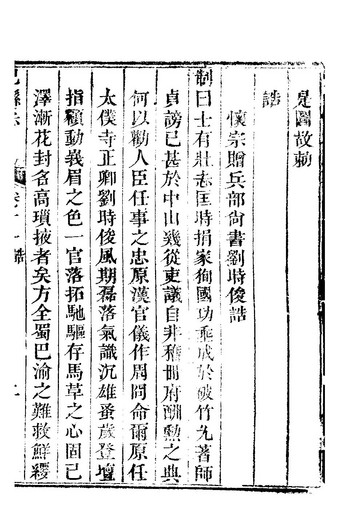 是圖故勅
誥
懷宗贈兵部尚書劉時俊誥
制曰士有壯志匡時捐家狥國功乖成於破竹允著師
貞謗已甚於中山幾從吏議自非稽冊府酬勲之典
何以勸人臣任事之忠原漢官儀作周冏命爾原任
太僕寺正卿劉時俊風期磊落氣識沉雄蚤歲登壇
指顧動義眉之色一官落拓馳驅存馬革之心固已
澤漸花封名高瑣掖者矣方全蜀巴渝之難救鮮纓
卷十一
二